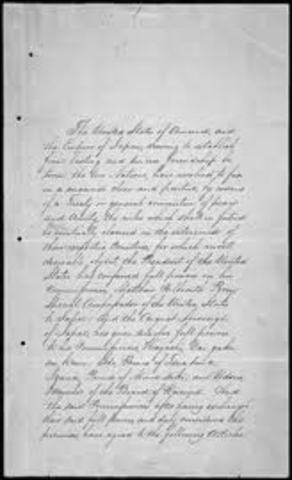 The United States of America, and
the Empire of Japan, desiring to establish
firm lasting and sincere friendship be
tween the two Nations, have resolved to fix
in a manner clear and positive, by means
of a Treaty or general convention of peace
and amity, the rules which shall in future
be mutually observed in the intercourse of
their respective Countries; for which most
desirable object the President of the United
States has conferred full powers on his
Commissioner, Matthew Perry
Special Ambassador of the United States
to Japan: And the August Sovereign
of Japan, has given similar full powers
to his Commissioners Hayashi, Dai-gaku
Ido, Prince of
Izawa, Prince of and Udono
Member of the Board of Revenue. And
the said Commissioners after having exchanged
their said full powers and duly considered the
premises, have agreed to the following Articles